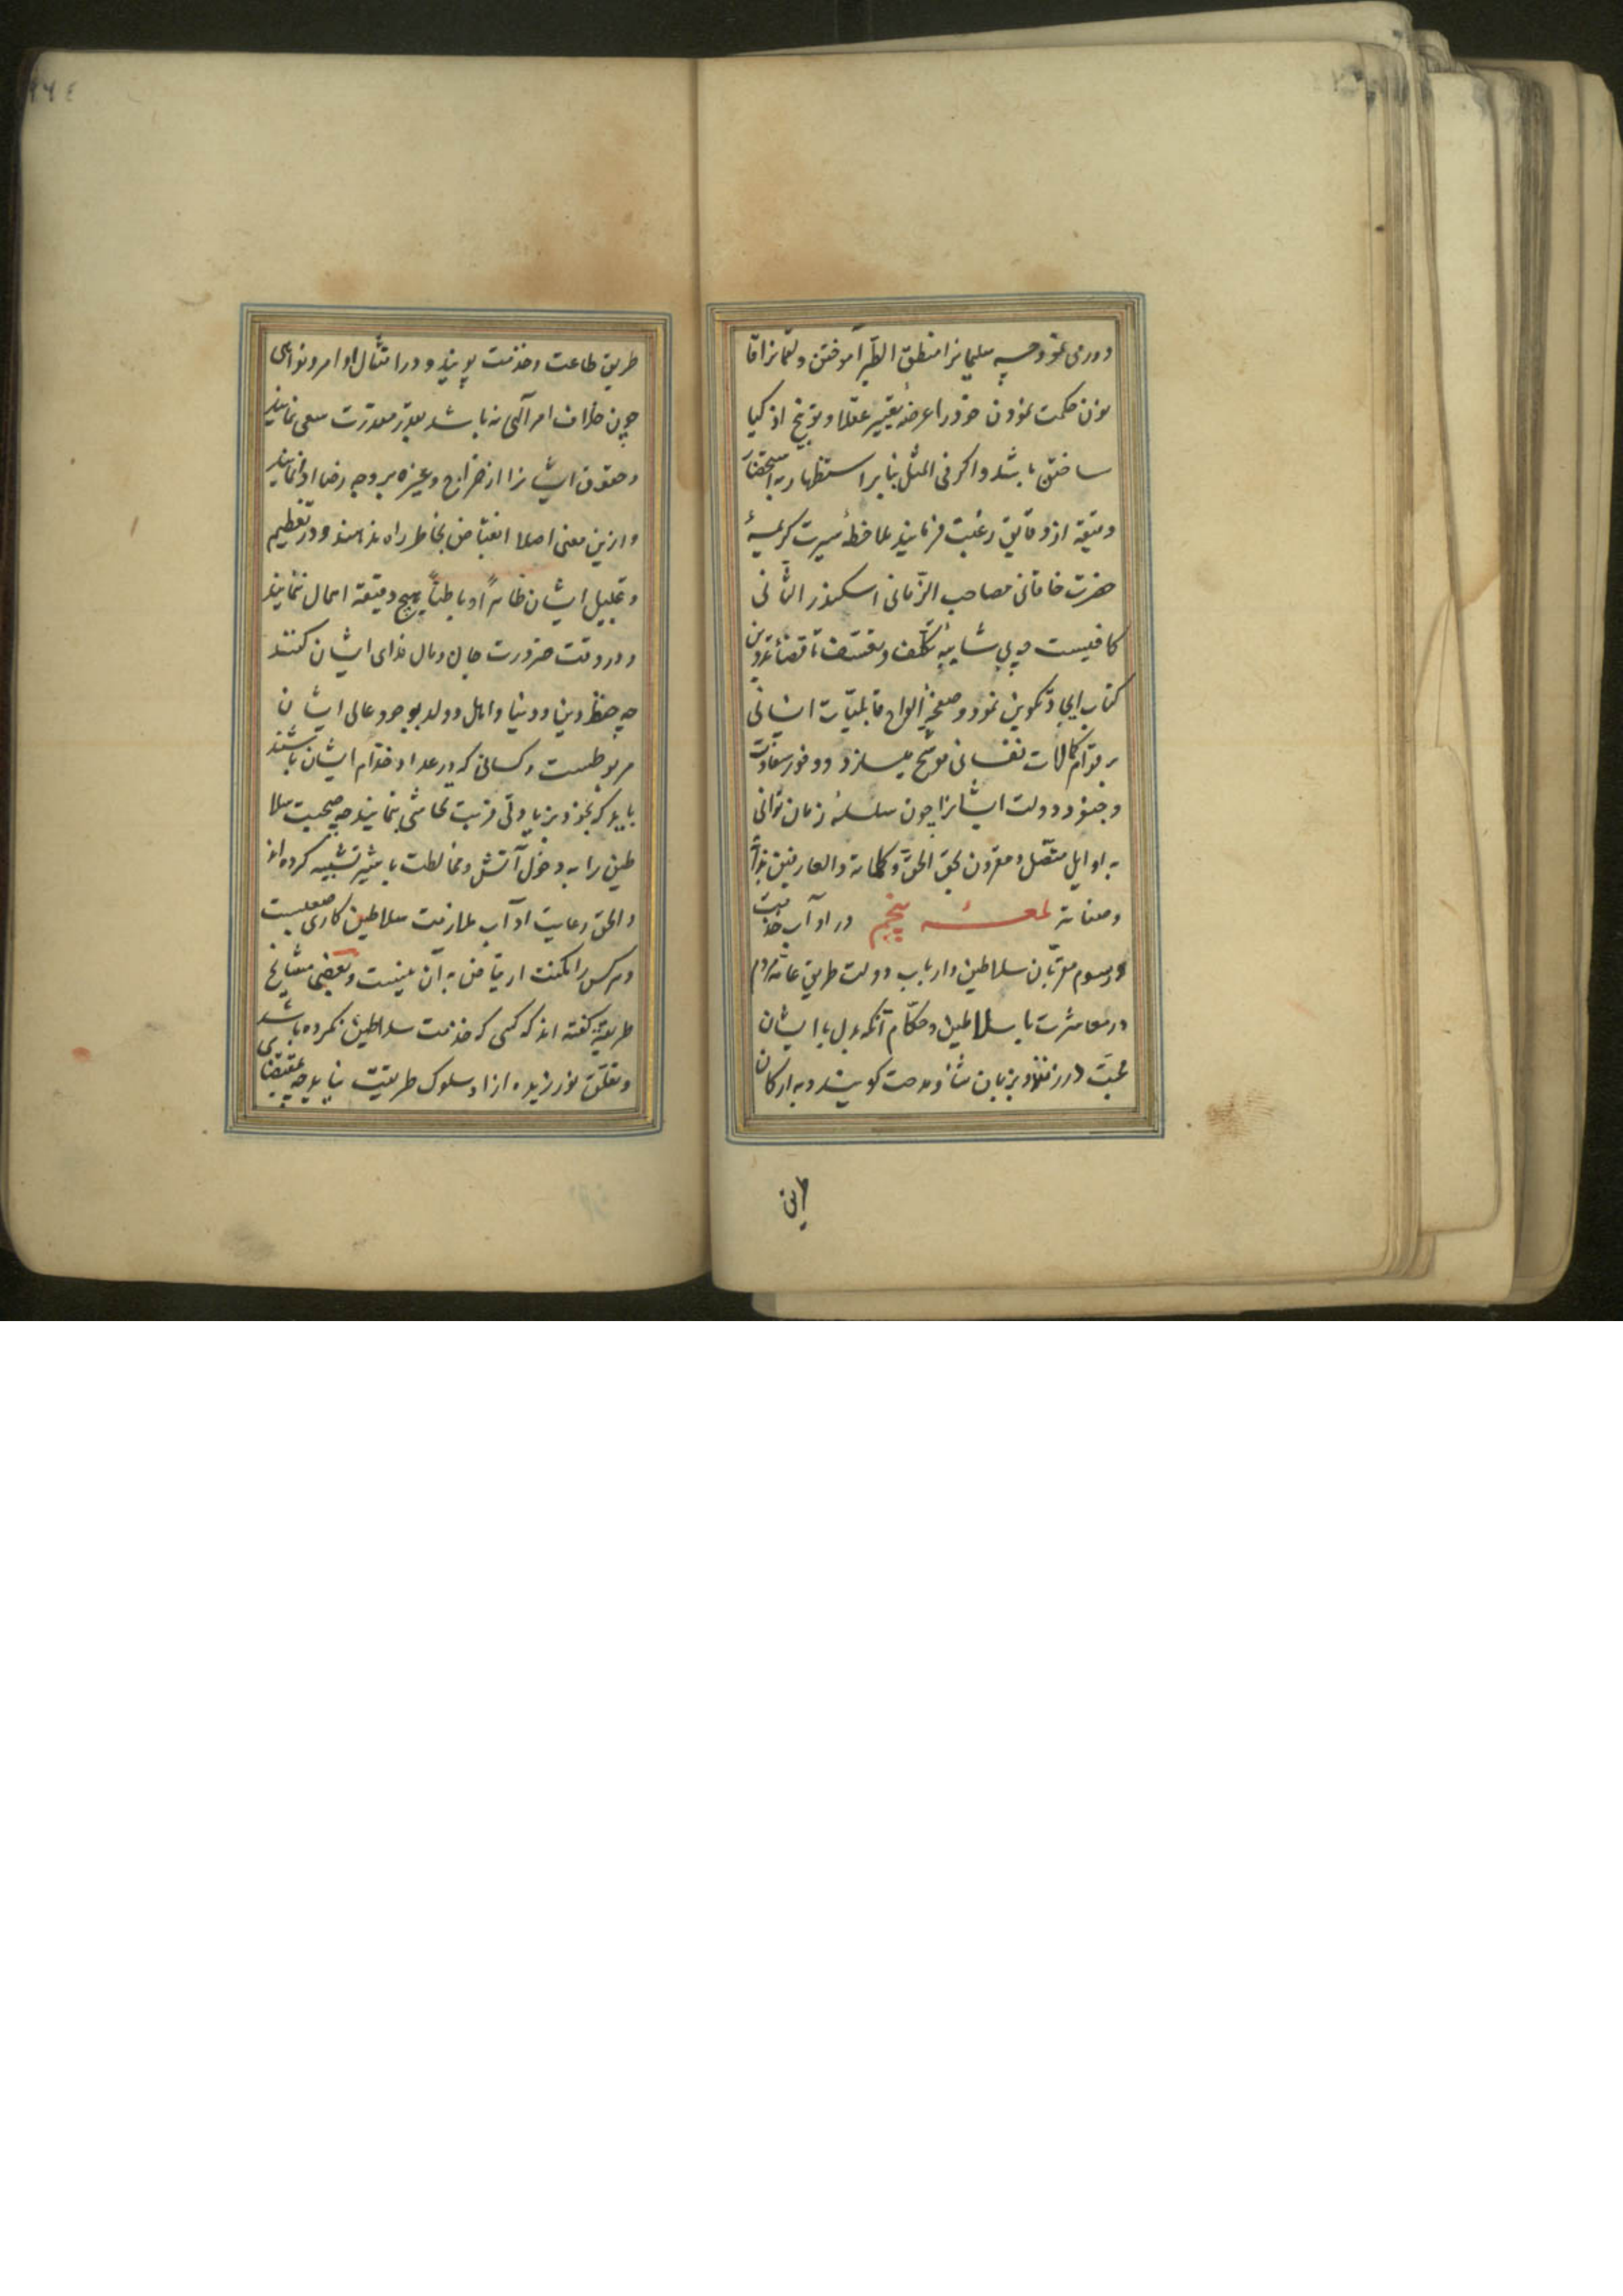 دوری نمود چه سلیمانرا منطق الطیر آموختن و لقمانرا قا
نون حکمت نمودن خود را عرضهٔ تعییر عقلا و توبیخ اذکیا
ساختن باشد و اکر فی المثل بنابر استظهار به استحضار
دقیقه از دقایق رغبت فرمایند ملاحظهٔ سیرت کریمهٔ
حضرت خاقانی صاحب الزّمانی اسکندر الثانی
کافیست چه بی شایبهٔ تکلّف و تعسّف تا قضا تدوین
کتاب ایجاد و تکوین نمود و صفحهٔ الواح قابلیّات انسانی
بر قوام کمالات نفسانی موشّح میسازد و وفور سعادت
و جنود دولت ایشانرا چون سلسلهٔ زمان ثوانی
به اوایل متّصل و مقرون بحق الحقّ و کلماته والعارفین بذاته
وصفاته لمعهٔ پنجم در آداب خدمت
و رسوم مقرّبان سلاطین و ارباب دولت طریق عامّه مردم
در معاشرت با سلاطین و حکّام آنکه بدل با ایشان
محبّت ورزند و بزبان ثنا و مدحت کویند و به ارکان
طریق
طریق طاعت و خدمت پویند و در امتثال اوامر و نواهی
چون خلاف امر آلهی نباشد بقدر مقدرت سعی نمایند
و حقوق ایشانرا از خراج و غیره بر وجه رضا ادا نمایند
و ازین معنی اصلا انقباض بخاطر راه ندهند و در تعظیم
و تجلیل ایشان ظاهراً و باطناً هیچ دقیقه اهمال ننمایند
و در وقت ضرورت جان و مال فدای ایشان کنند
چه حفظ دین و دنیا و اهل و ولد بوجود عالی ایشان
مربوطست و کسانی که در عداد خدّام ایشان باشند
باید که بخود بزیادتی قربت تحاشی نمایند چه صحبت سلا
طین را به دخول آتش و مخالطت با شیر تشبیه کرده اند
و الحق رعایت آداب ملازمت سلاطین کاری صعبست
و هرکس را مکنت ارتیاض به آن نیست و بعضی مشایخ
طریقه کفته اند که کسی که خدمت سلاطین نکرده باشد
و تعلّق نورزیده ازاو سلوک طریقت نیاید چه بمقتضای